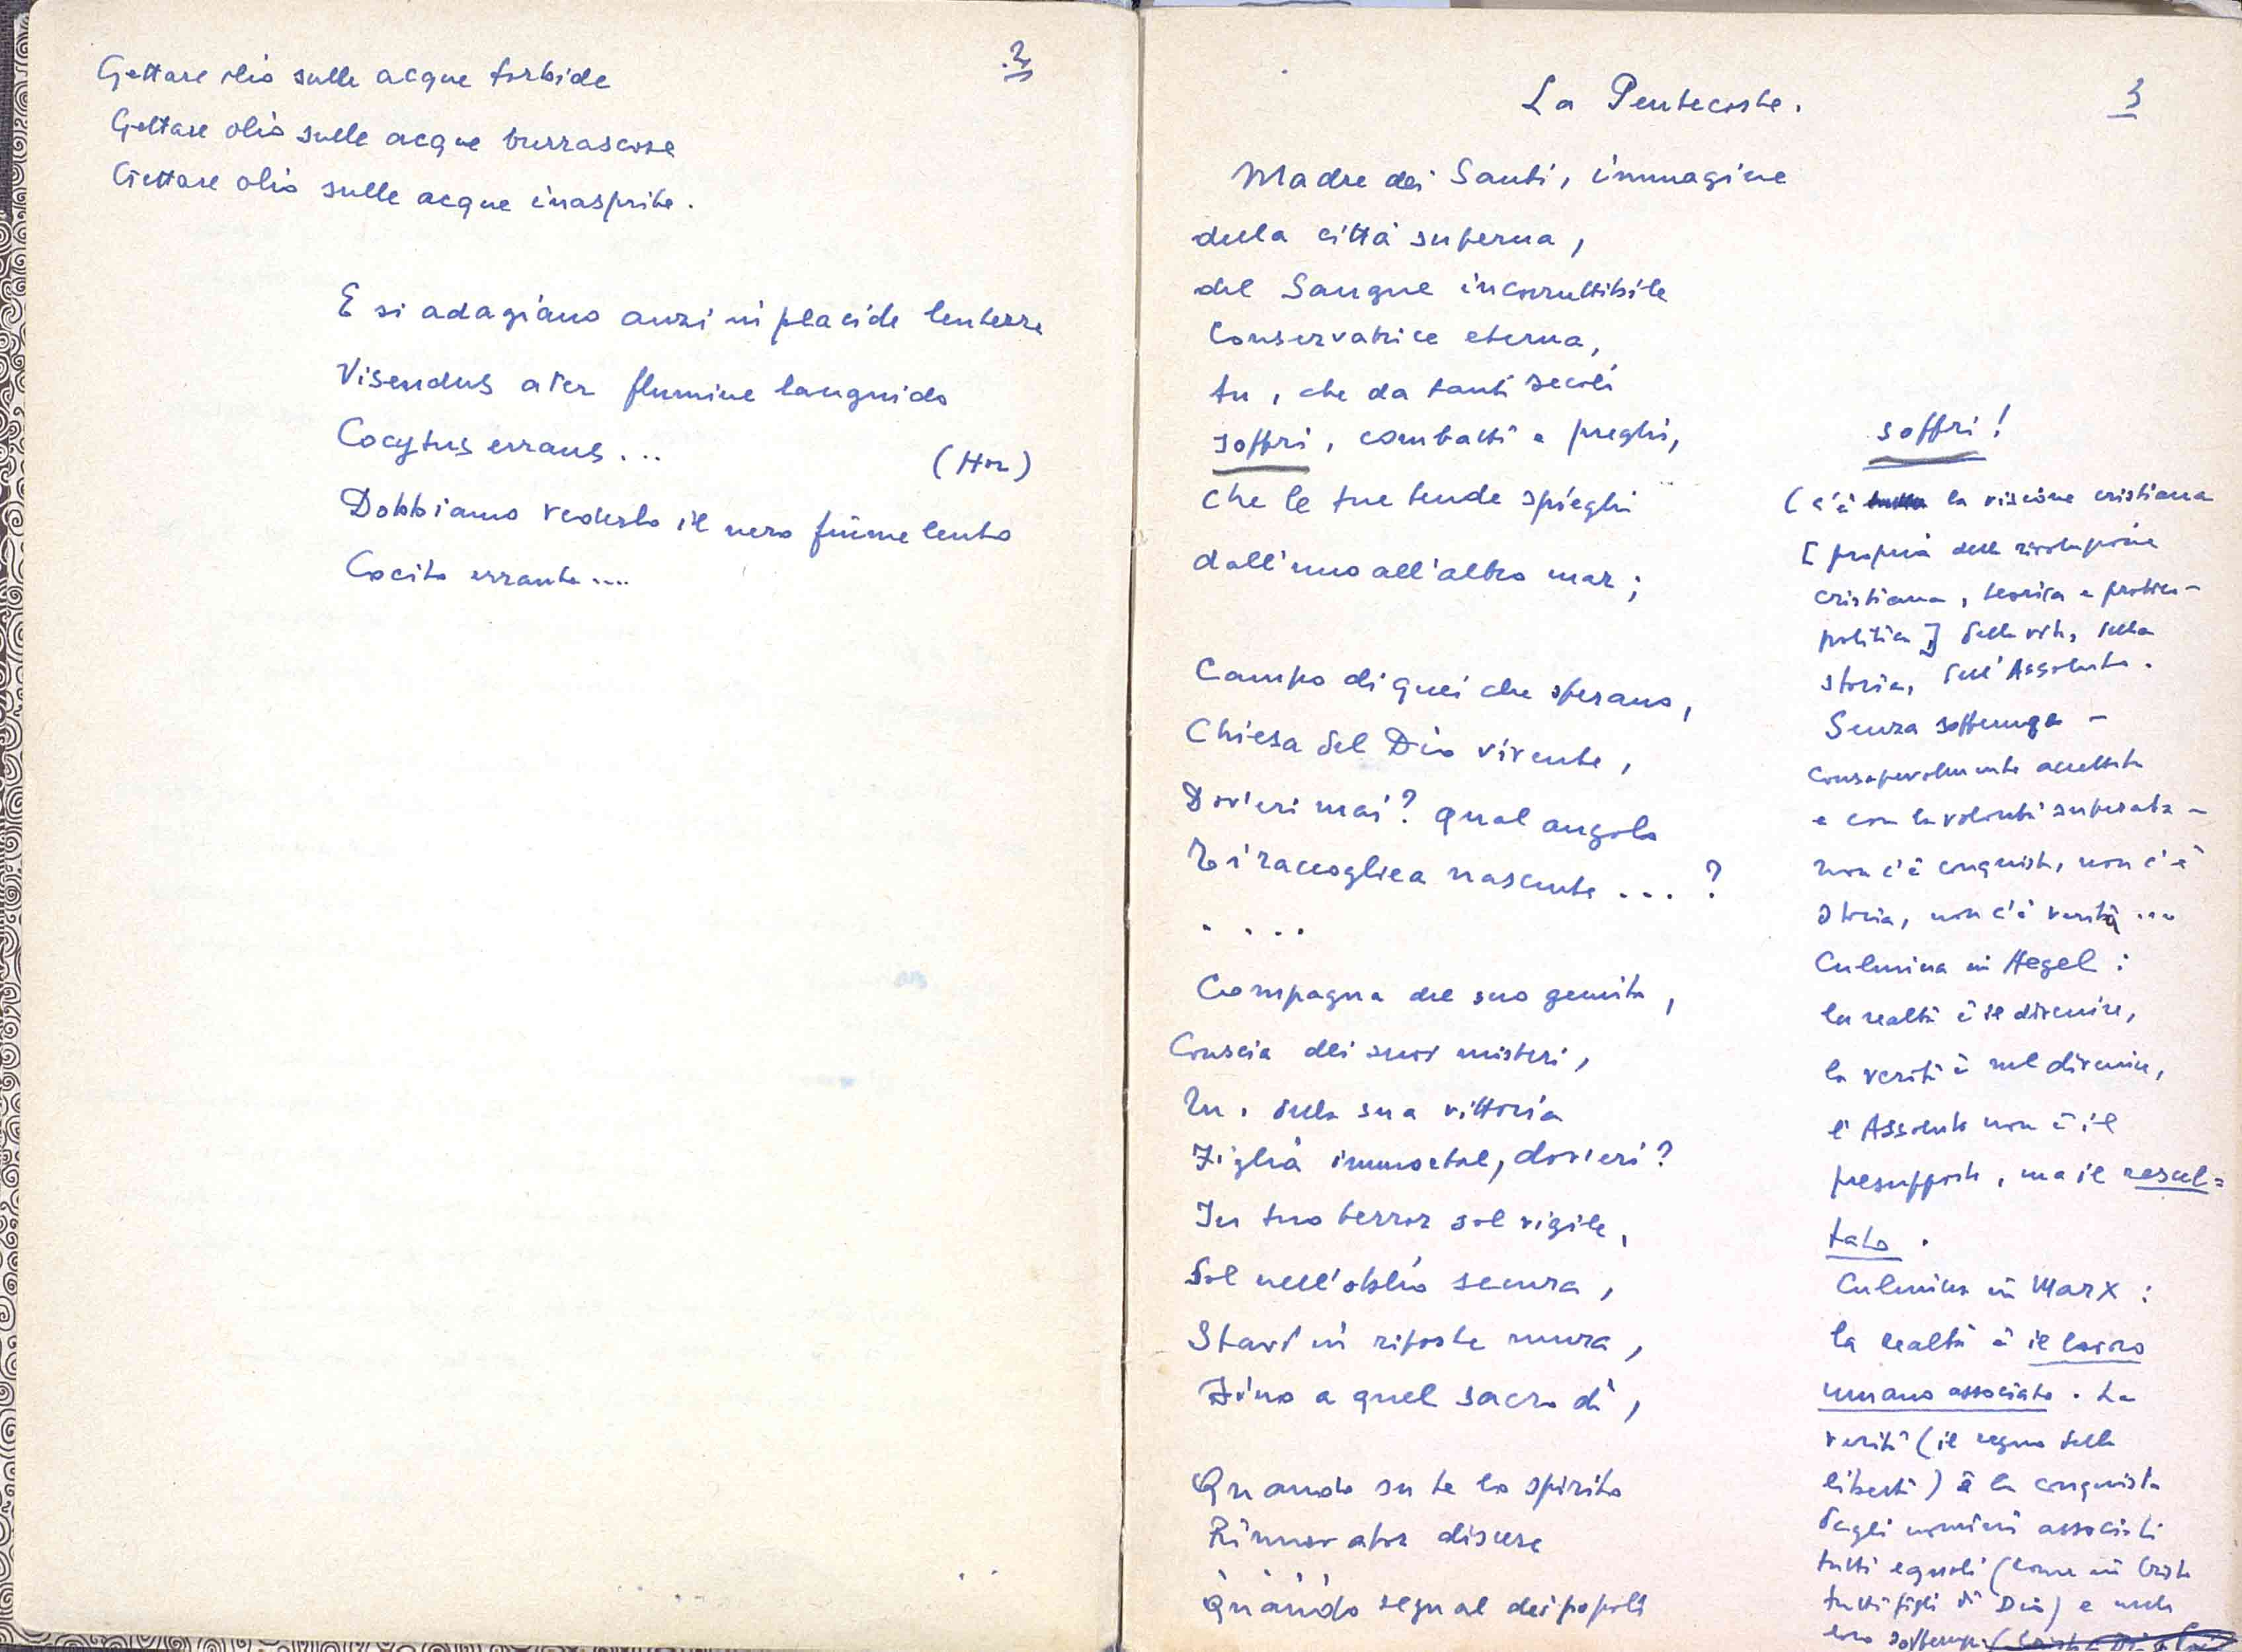 2
Gettare olio sulle acque torbide
Gettare olio sulle acque burrascose
Gettare olio sulle acque inasprite.
E si adagiano anzi in placide lenterre
Visendus ater flumine languido
Cocytus errans...
(Hor)
Dobbiamo vederlo il nero fiume lento
Cocito errante....
3
La Pentecoste.
Madre dei Santi, immagine
della città superna,
del Sangue incorruttibile
Conservatrice eterna,
tu, che da tanti secoli
soffri, combatti e preghi,
che le tue tende spieghi
dall'uno all'altro mar;
Campo di quei che sperano,
Chiesa del Dio vivente,
Dov'eri mai? qual angolo
Ti raccogliea nascente ... ?
....
Compagna del suo gemito,
Conscia dei suoi misteri,
Tu, della sua vittoria
Figlia immortal, dov'eri?
In tuo terror sol vigile,
Sol nell'oblio secura,
Stavi in riposte mura,
Fino a quel sacro dì,
Quando su te lo spirito
Rinnovator discese
. . . .
Quando segnal dei popoli
soffri!
(c'è la visione cristiana
[propria della rivoluzione
cristiana, teorica e pratico-
politica] della vita, della
storia, dell'Assoluto.
Senza sofferenza -
consapevolmente accettata
e con la volontà superata -
non c'è conquista, non c'è
storia, non c'è verità ...
Culmina in Hegel:
la realtà è il divenire,
la verità è nel divenire,
l'Assoluto non è il
presupposto, ma il resul=
tato.
Culmina in Marx:
la realtà è il lavoro
umano associato. La
verità (il regno della
libertà) è la conquista
degli uomini associati
tutti eguali (come in Cristo
tutti figli di Dio) e nella
loro sofferenza